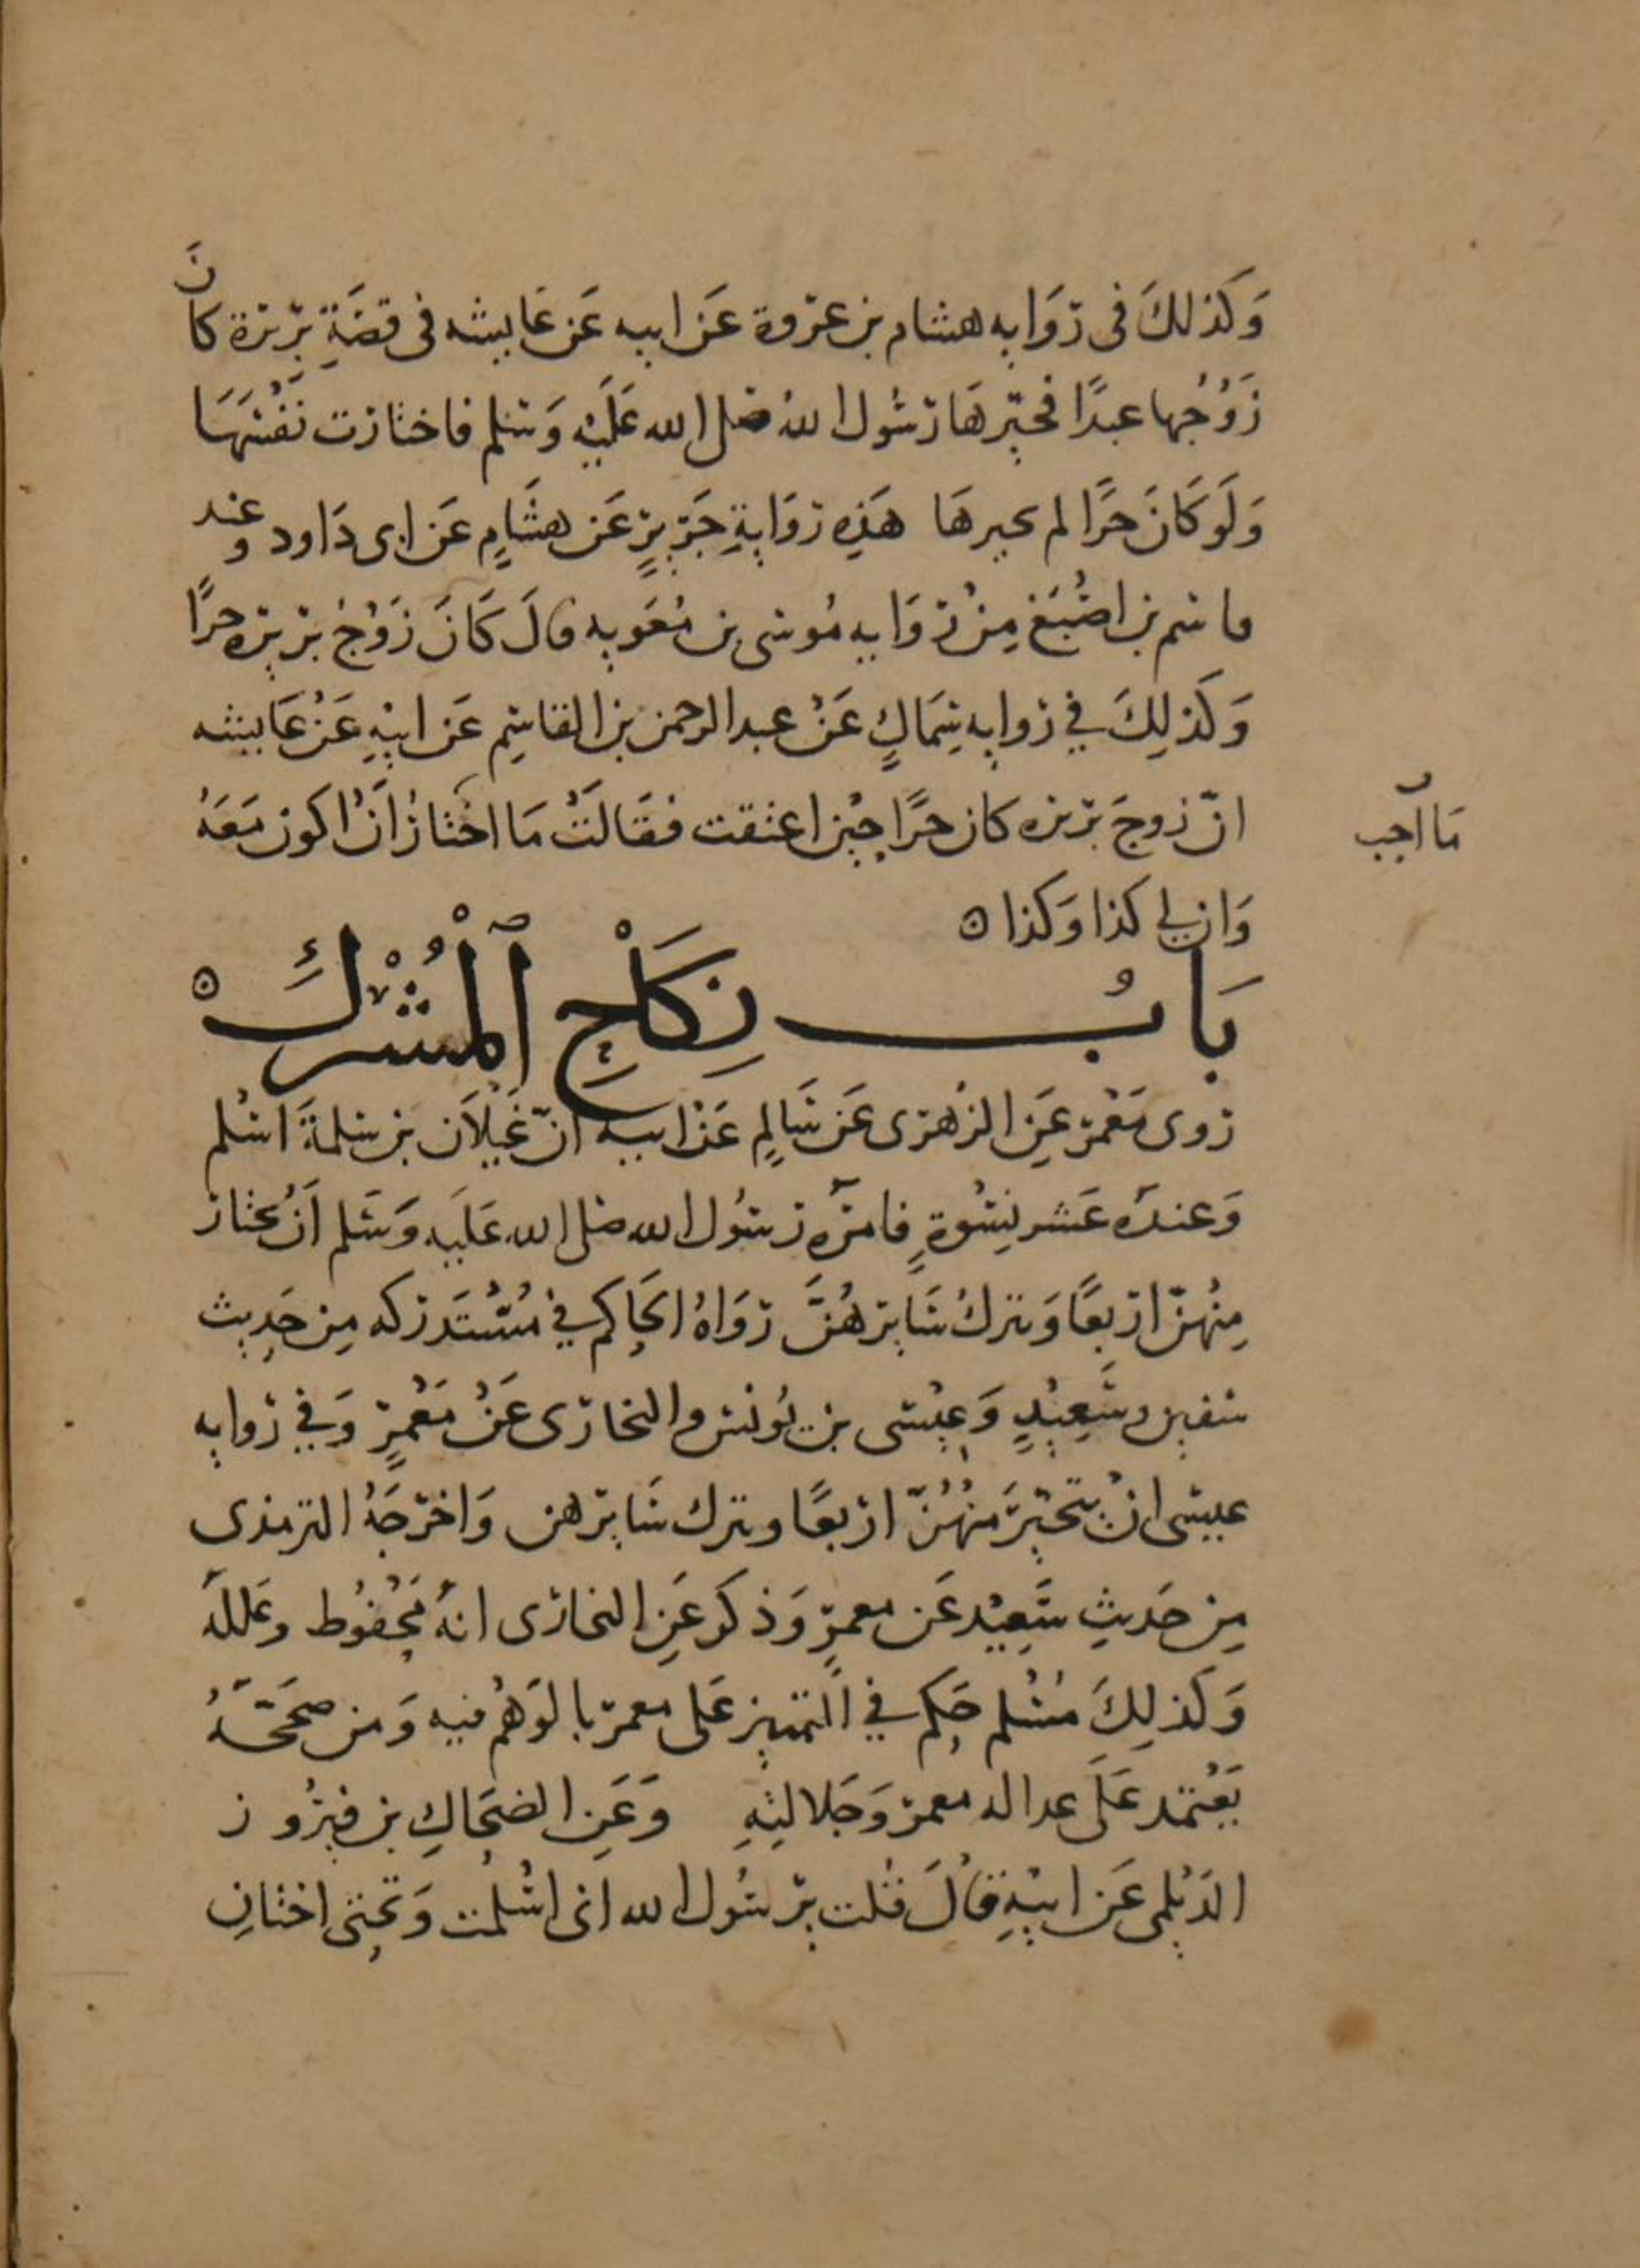 وَكَذلكَ فى رِوَايه هشام بن عروة عَن ابيه عَن عَايشه فى قصَةِ بريرة كانَ
زَوْجُها عبدًا فخيّرهَا رسُول اللهُ صلى الله عَلَيْهِ وَسَلم فاختارت نَفْسَهَا
وَلَو كَانَ حرًا لم يخيرهَا هَذِهِ رِوَايةِ جَرِيرٍ عَن هشَامٍ عَن ابى دَاود وعند
قاسم بن اصْبَغ مِنْ رِوَايه مُوسى بن مُعَويه قالَ كَانَ زَوْجُ بريره حرًا
وَكَذلِكَ في روايه سِمَاكٍ عَنْ عبد الرحمن بن القاسِم عَن ابيْهِ عَنْ عَايشه
انّ زوجَ بريره كان حرًا حِيْن اعتقت فقَالَتْ مَا اختارُ اَنْ اكون مَعَهُ
مَا اُحِب
وَان لي كذا وَكذا ه
بَابُ نِكَاحِ ٱلْمُشْرِكِ ه
روى مَعْمَر عَنِ الزُهرى عَن سَالِمٍ عَنْ ابيه انّ غَيْلاَن بن سَلمةَ اسْلم
وَعندَه عَشر نِسْوةٍ فامرَه رسُول الله صلى الله عَلَيه وَسَلم اَنْ يختار
مِنْهُنّ اربعًا وَيترك سَايرهُنَّ رَوَاهُ الحَاكِم في مُسْتَدركه مِن حَدِيث
سفين وسَعِيْدٍ وَعِيْسى بن يُونس والبخارى عَنْ مَعْمَرٍ وَفي روايه
عيسى انْ يتخيّرَ منْهُنّ اربعًا ويترك سَايرهن وَاخرجَهُ الترمذى
مِن حَديثِ سَعِيْد عَن معمرٍ وَذكر عَنِ البخارى انهُ غير محْفُوط وعَللَه
وَكَذلِكَ مُسْلم حَكم في التمييز عَلى معمر بالوَهْم فيه وَمن صححَهُ
يَعْتمد عَلَى عداله معمر وَجَلالتِهِ وَعَنِ الضحَاكِ بن فيرُوز
الدَيْلمى عَن ابيْهِ قالَ قلت يرسُول الله انى اسْلمت وَتحتى اختانِ